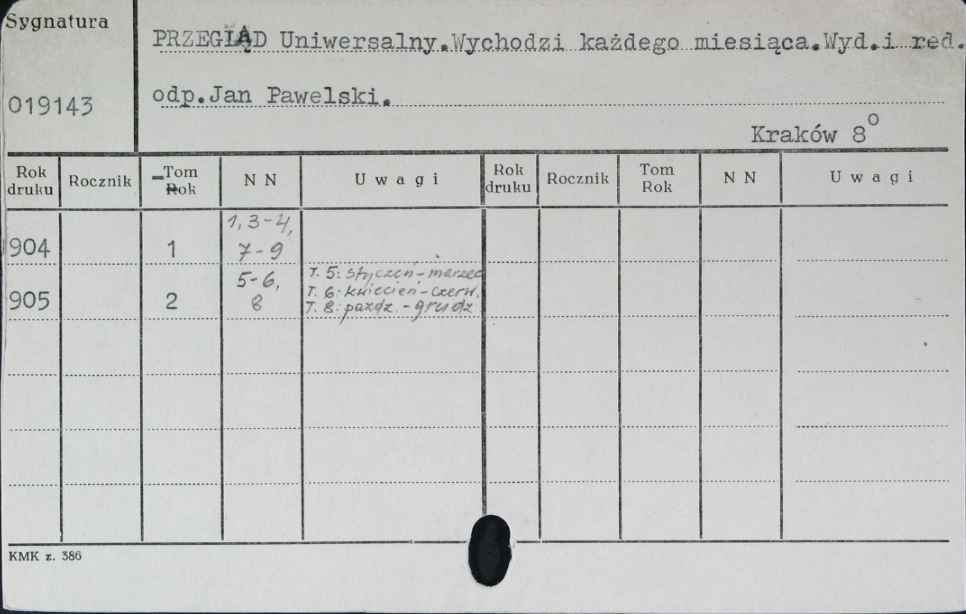 Sygnatura
019143
PRZEGLĄD Uniwersalny.Wychodzi każdego miesiąca.Wyd.i red.
odp.Jan Pawelski.
Kraków 8°
Rok druku Rocznik Tom Rok N N U w a g i Rok druku Rocznik Tom Rok N N U w a g i
1, 3-4,
904 1 7-9
5-6, T. 5: styczeń - marzec
905 2 T. 6: kwiecień - czerw.
8 T. 8: paźdz. - grudz.
KMK z. 386